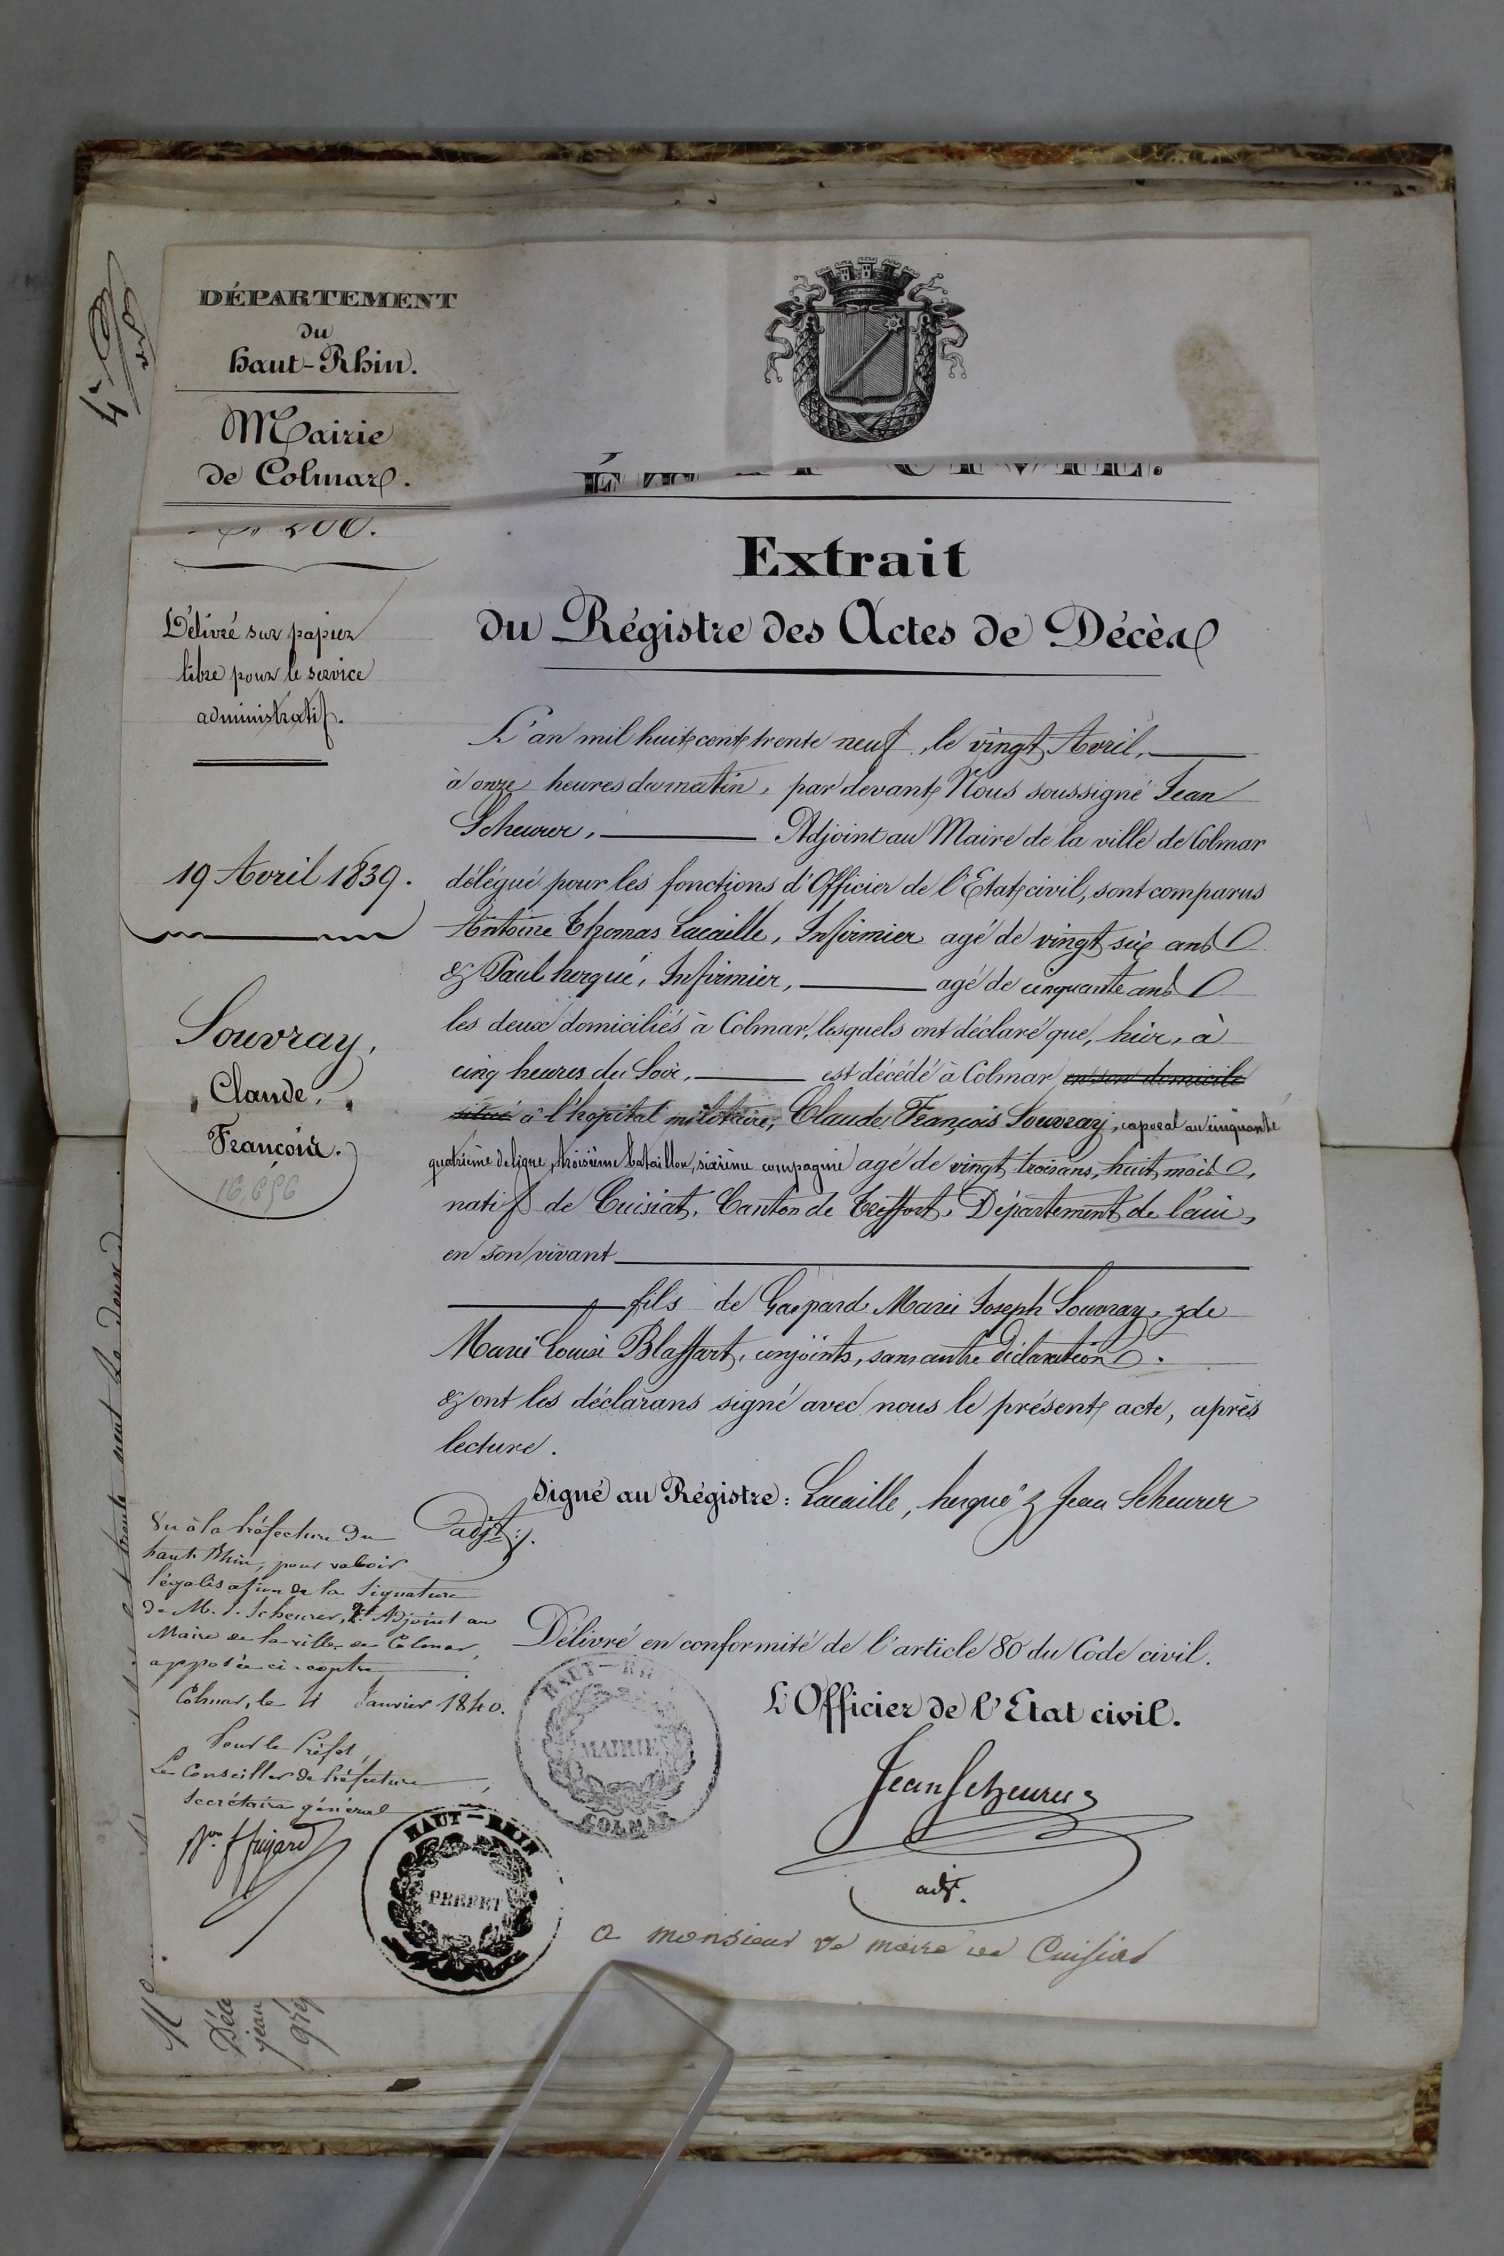 DÉPARTEMENT
du
Haut-Rhin.
Mairie
de Colmar.
Délivré sur papier
libre pour le service
administratif.
19 Avril 1839.
Souvray,
Claude,
François.
ÉTAT CIVIL.
Extrait
du Régistre des Actes de Décès
L'an mil huit cent trente neuf, le vingt Avril,
à onze heures du matin, par devant Nous soussigné Jean
Scheurer, Adjoint au Maire de la ville de Colmar
délégué pour les fonctions d'Officier de l'Etat civil, sont comparus
Antoine Thomas Lacaille, Infirmier agé de vingt six ans
& Paul hergué, Infirmier, agé de cinquante ans
les deux domiciliés à Colmar, lesquels ont déclaré que, hier, à
cinq heures du Soir, est décédé à Colmar en son domicile
situé à l'hopital militaire, Claude François Souvray, caporal au cinquante
quatrième de ligne, troisième bataillon, sixième compagnie agé de vingt trois ans, huit mois,
natif de Cuisiat, Canton de Treffort, Département de l'ain,
en son vivant
fils de Gaspard Marie Joseph Souvray, & de
Marie Louise Blaffart, conjoints, sans autre déclaration.
& ont les déclarans signé avec nous le présent acte, après
lecture.
Signé au Régistre: Lacaille, hergué & Jean Scheurer
adjt.
Vu à la Préfecture du
haut-Rhin, pour valoir
légalisation de la Signature
de M. J. Scheurer, Adjoint au
Maire de la ville de Colmar,
apposée ci-contre.
Colmar, le 4 Janvier 1840.
Pour le Préfet,
Le Conseiller de Préfecture
Secrétaire général
Délivré en conformité de l'article 80 du Code civil.
L'Officier de l'Etat civil.
Jean Scheurer
adjt.
HAUT-RHIN
MAIRIE
COLMAR
HAUT-RHIN
PREFET
a monsieur le maire de Cuisiat